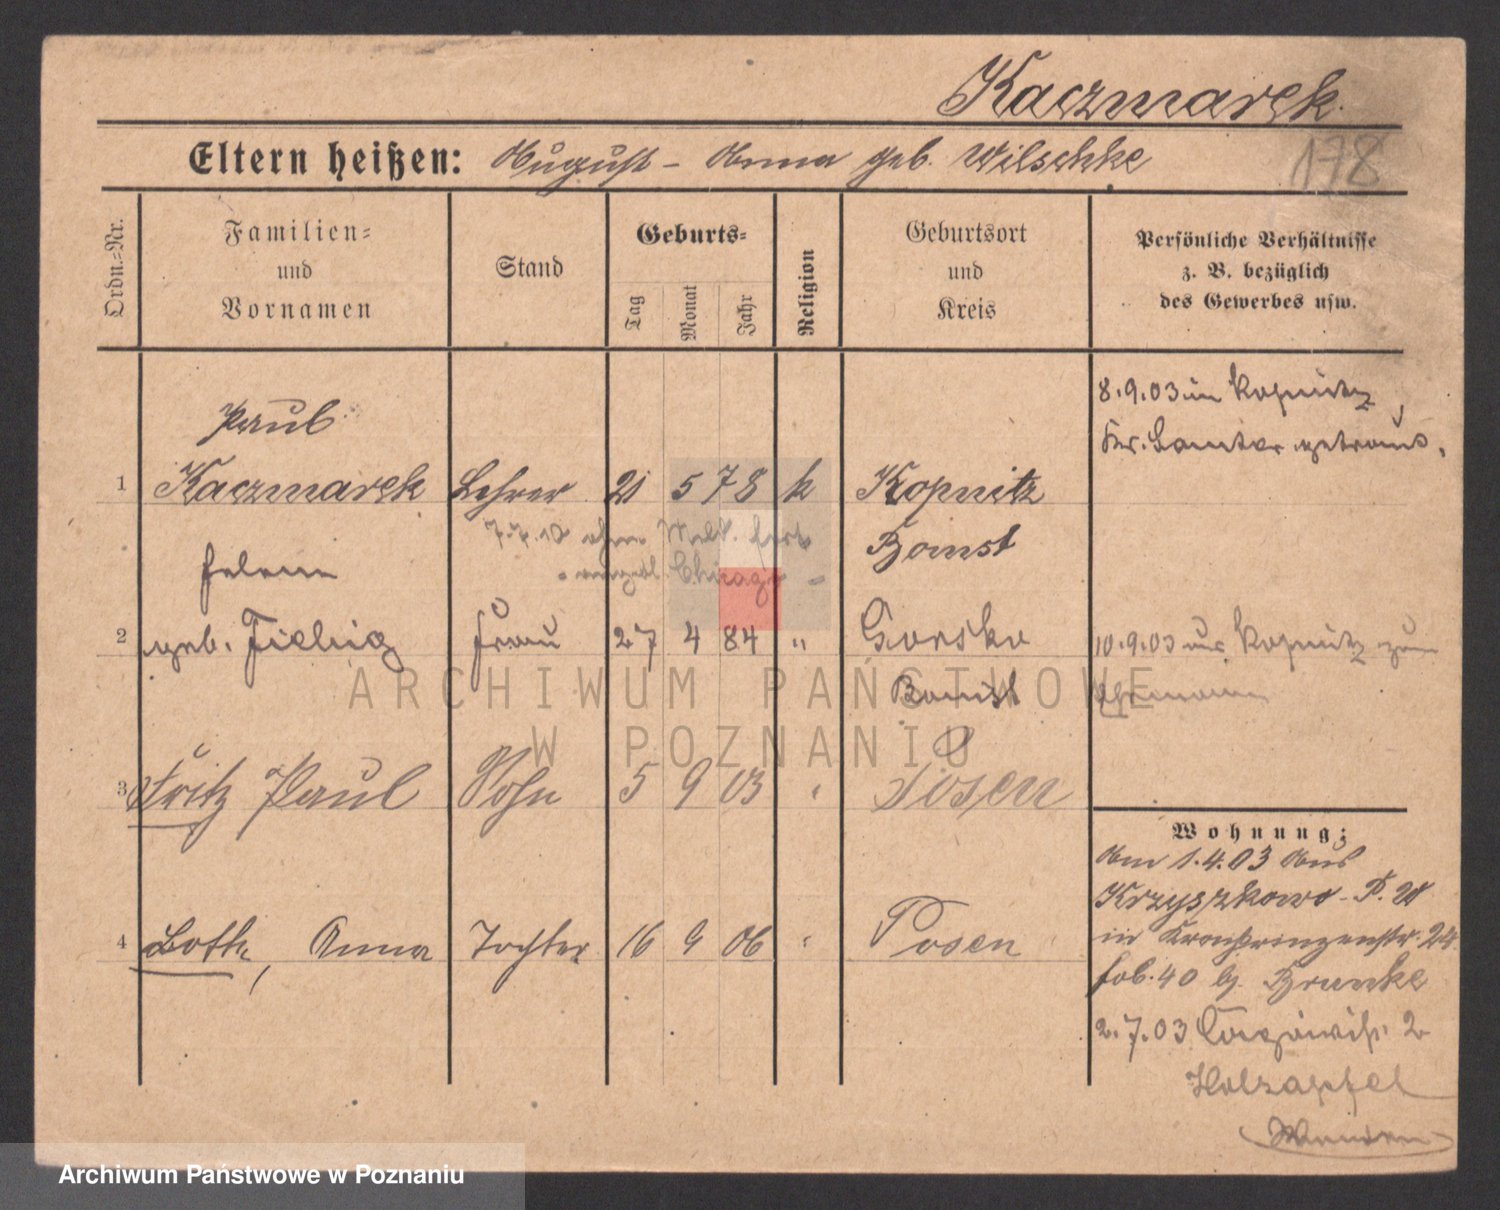 Kaczmarek.
Eltern heißen: August - Anna geb. Wilschke
178
Ordn.-Nr.
Familien- und Vornamen
Stand
Geburts-
Tag
Monat
Jahr
Religion
Geburtsort und Kreis
Persönliche Verhältnisse
z. B. bezüglich
des Gewerbes usw.
8.9.03 in Kopnitz,
Kr. Bomst getraut.
Paul
1 Kaczmarek Lehrer 21 5 78 k Kopnitz
7.7.10 ohne Meld. fort
angebl. Chicago
Bomst
Helene
2 geb. Fiebig Frau 27 4 84 " Gorsko
10.9.03 aus Kopnitz zum
Ehemann
Bomst
3 Fritz Paul Sohn 5 9 03 " Posen
4 Anna Tochter 16 9 06 " Posen
Wohnung:
Am 1.4.03 aus
Krzyszkowo - P. W
in Kronprinzenstr. 24
b. Brunke
2.7.03 2
Holzapfel
ARCHIWUM PAŃSTWOWE
W POZNANIU
Archiwum Państwowe w Poznaniu